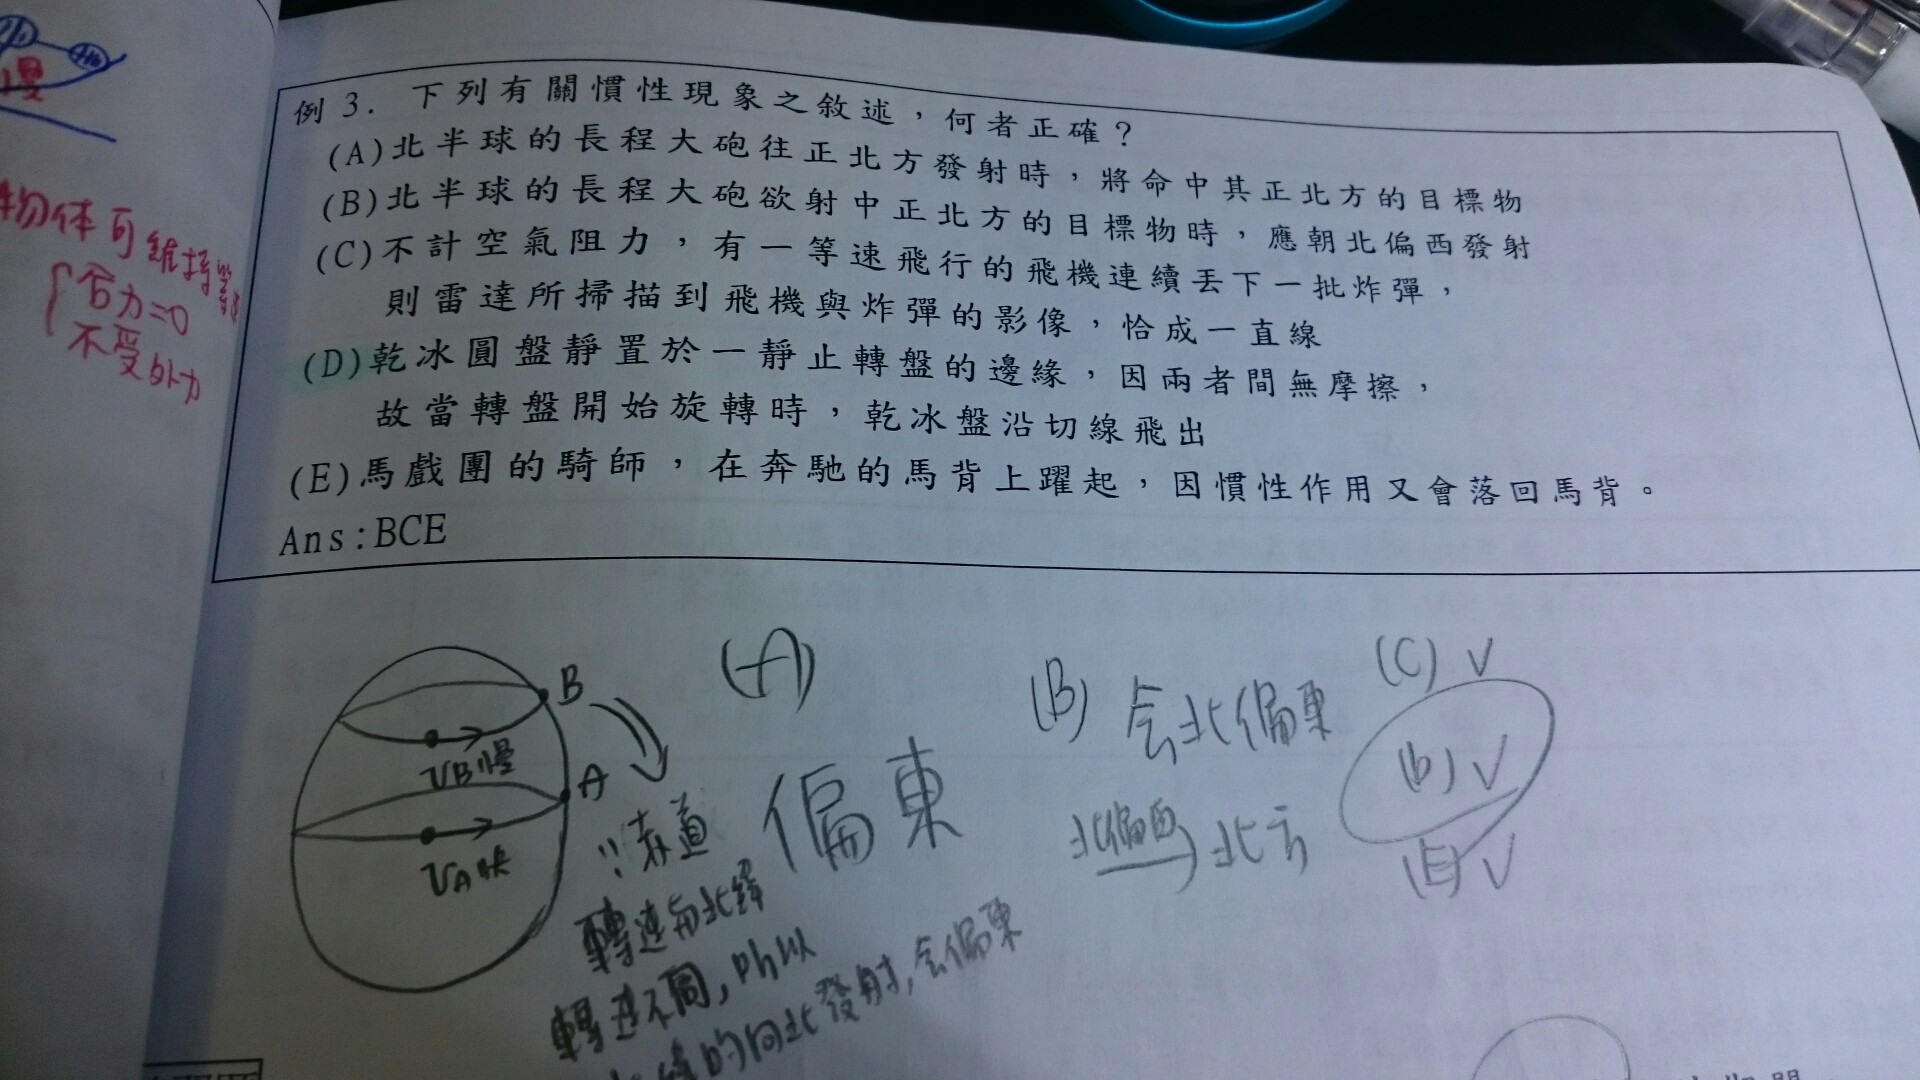 慢
物体可維持
合力=0
不受外力
例 3. 下列有關慣性現象之敘述，何者正確？
(A)北半球的長程大砲往正北方發射時，將命中其正北方的目標物
(B)北半球的長程大砲欲射中正北方的目標物時，應朝北偏西發射
(C)不計空氣阻力，有一等速飛行的飛機連續丟下一批炸彈，
則雷達所掃描到飛機與炸彈的影像，恰成一直線
(D)乾冰圓盤靜置於一靜止轉盤的邊緣，因兩者間無摩擦，
故當轉盤開始旋轉時，乾冰盤沿切線飛出
(E)馬戲團的騎師，在奔馳的馬背上躍起，因慣性作用又會落回馬背。
Ans:BCE
B
VB慢
A
VA快
(A)
偏東
赤道
轉速與北緯
轉速不同，所以
的向北發射，会偏東
(B) 会北偏東
北偏西 北方
(C) ✓
(D) ✓
(E) ✓